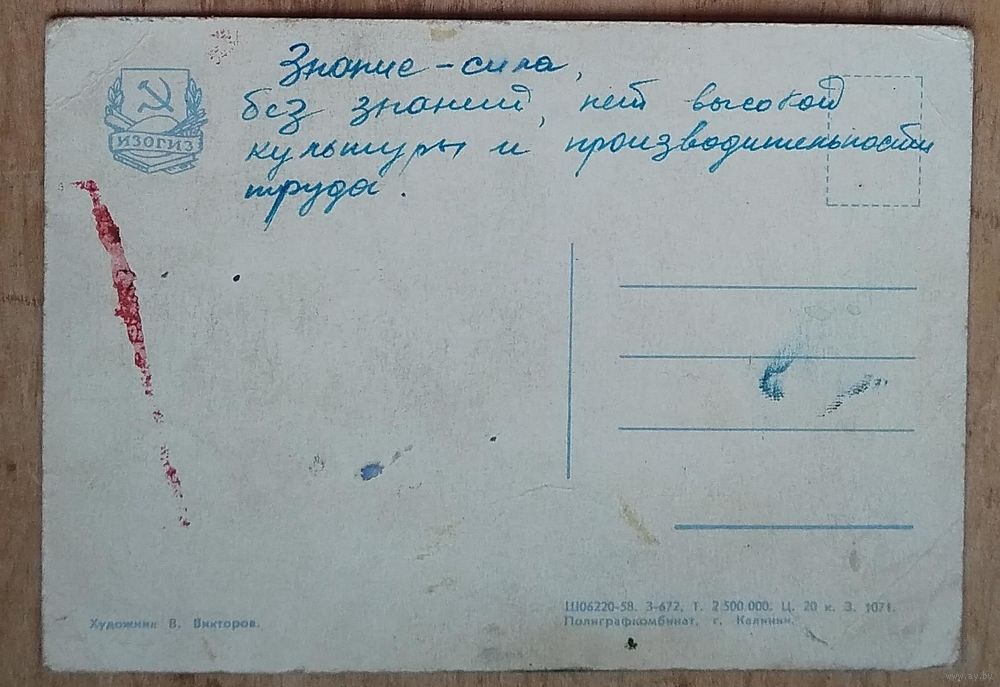 Знание - сила,
без знаний, нет высокой
культуры и производительности
труда.
ИЗОГИЗ
Художник В. Викторов.
Ш06220-58. З-672. Т. 2 500 000. Ц. 20 к. З. 1071.
Полиграфкомбинат, г. Калинин.
www.ay.by